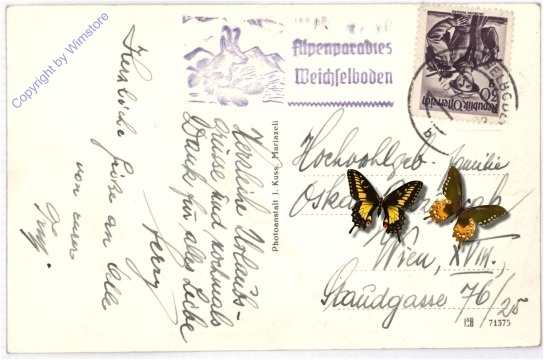 Copyright by Wimstore
Alpenparadies
Weichselboden
Republik Österreich
30
Herzliche Grüße an Alle
von eurer
Herzliche Urlaubs-
grüsse und nochmals
Dank für alles Liebe
Ferry
Photoanstalt J. Kuss, Mariazell
Hochwohlgeb. Familie
Oskar
Wien, XVIII.
Staudgasse 76/25
71375